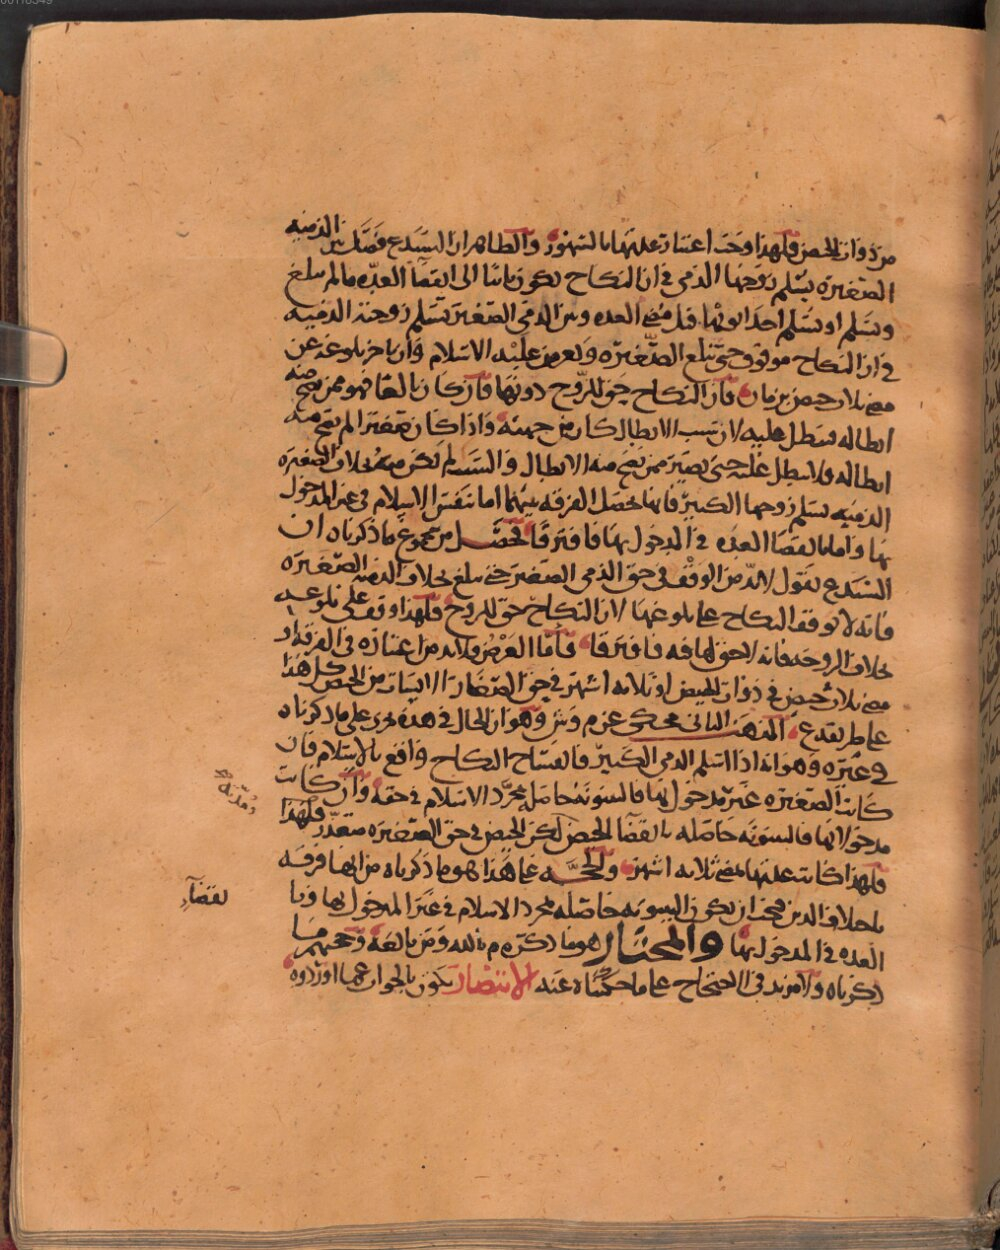 من ذوات الحيض فلهذا وجب اعتبار عدتها بالشهور والظاهر ان السيد ع فصل بين الذميه
الصغيره يسلم زوجها الذمي في ان النكاح يكون باتا الى انقضآ العده ما لم تبلغ
وتسلم او يسلم احد ابويها قبل مضي العده وبين الذمي الصغير تسلم زوجته الذميه
في ان النكاح موقوف حتى تبلغ الصغيره ويعرض عليه الاسلام وان تاخر بلوغه عن
مضي ثلاث حيض من زمان فان النكاح حق للزوج دونها فان كان بالغا فهو ممن يصح منه
ابطاله فبطل عليه لان سبب الابطال كان من جهته واذا كان صغيرا لم يصح منه
ابطاله فلا يبطل عليه حتى يصير ممن يصح منه الابطال والسبب لم يكن منه بخلاف الصغيره
الذميه يسلم زوجها الكبير فانها تحصل الفرقه بينهما اما بنفس الاسلام في غير المدخول
بها واما بانقضا العده في المدخول بها فافترقا فحصل من مجموع ما ذكرناه ان
السيد ع يقول لا بد من الوقف في حق الذمي الصغير حتى يبلغ بخلاف الذميه الصغيره
فانه لا يوقف النكاح على بلوغها لان النكاح حق للزوج فلهذا وقف على بلوغه
بخلاف الزوجه فانه لا حق لها فيه فافترقا فاما العرض فلا بد من اعتباره في الفرقه او
مضي ثلاث حيض في ذوات الحيض او ثلاثه اشهر في حق الصغار والايسات من الحيض كل هذا
على طريقه ع المذهب الثاني محكي عن م وش وهو ان الحال في هذه يجري على ما ذكرناه
في غيره وهو انه اذا اسلم الذمي الكبير فانفساخ النكاح واقع بالاسلام فان
كانت الصغيره غير مدخول بها فالبينونه حاصله بمجرد الاسلام في حقه وان كانت
مدخولا بها فالبينونه حاصله بانقضآ الحيض لكن الحيض في حق الصغيره متعذر فلهذا
فلهذا كانت عدتها بمضي ثلاثه اشهر والحجه على هذا هو ما ذكرناه من انها فرقه
باختلاف الدين فيجب ان يكون البينونه حاصله بمجرد الاسلام في غير المدخول بها
العده في المدخول بها والمختار هو ما ذكره م بالله وش
ذكرناه ولا مزيد في الاحتجاج على ما حكيناه عنه الانتصار يكون بالجواب عما اوردوه
بقضآ